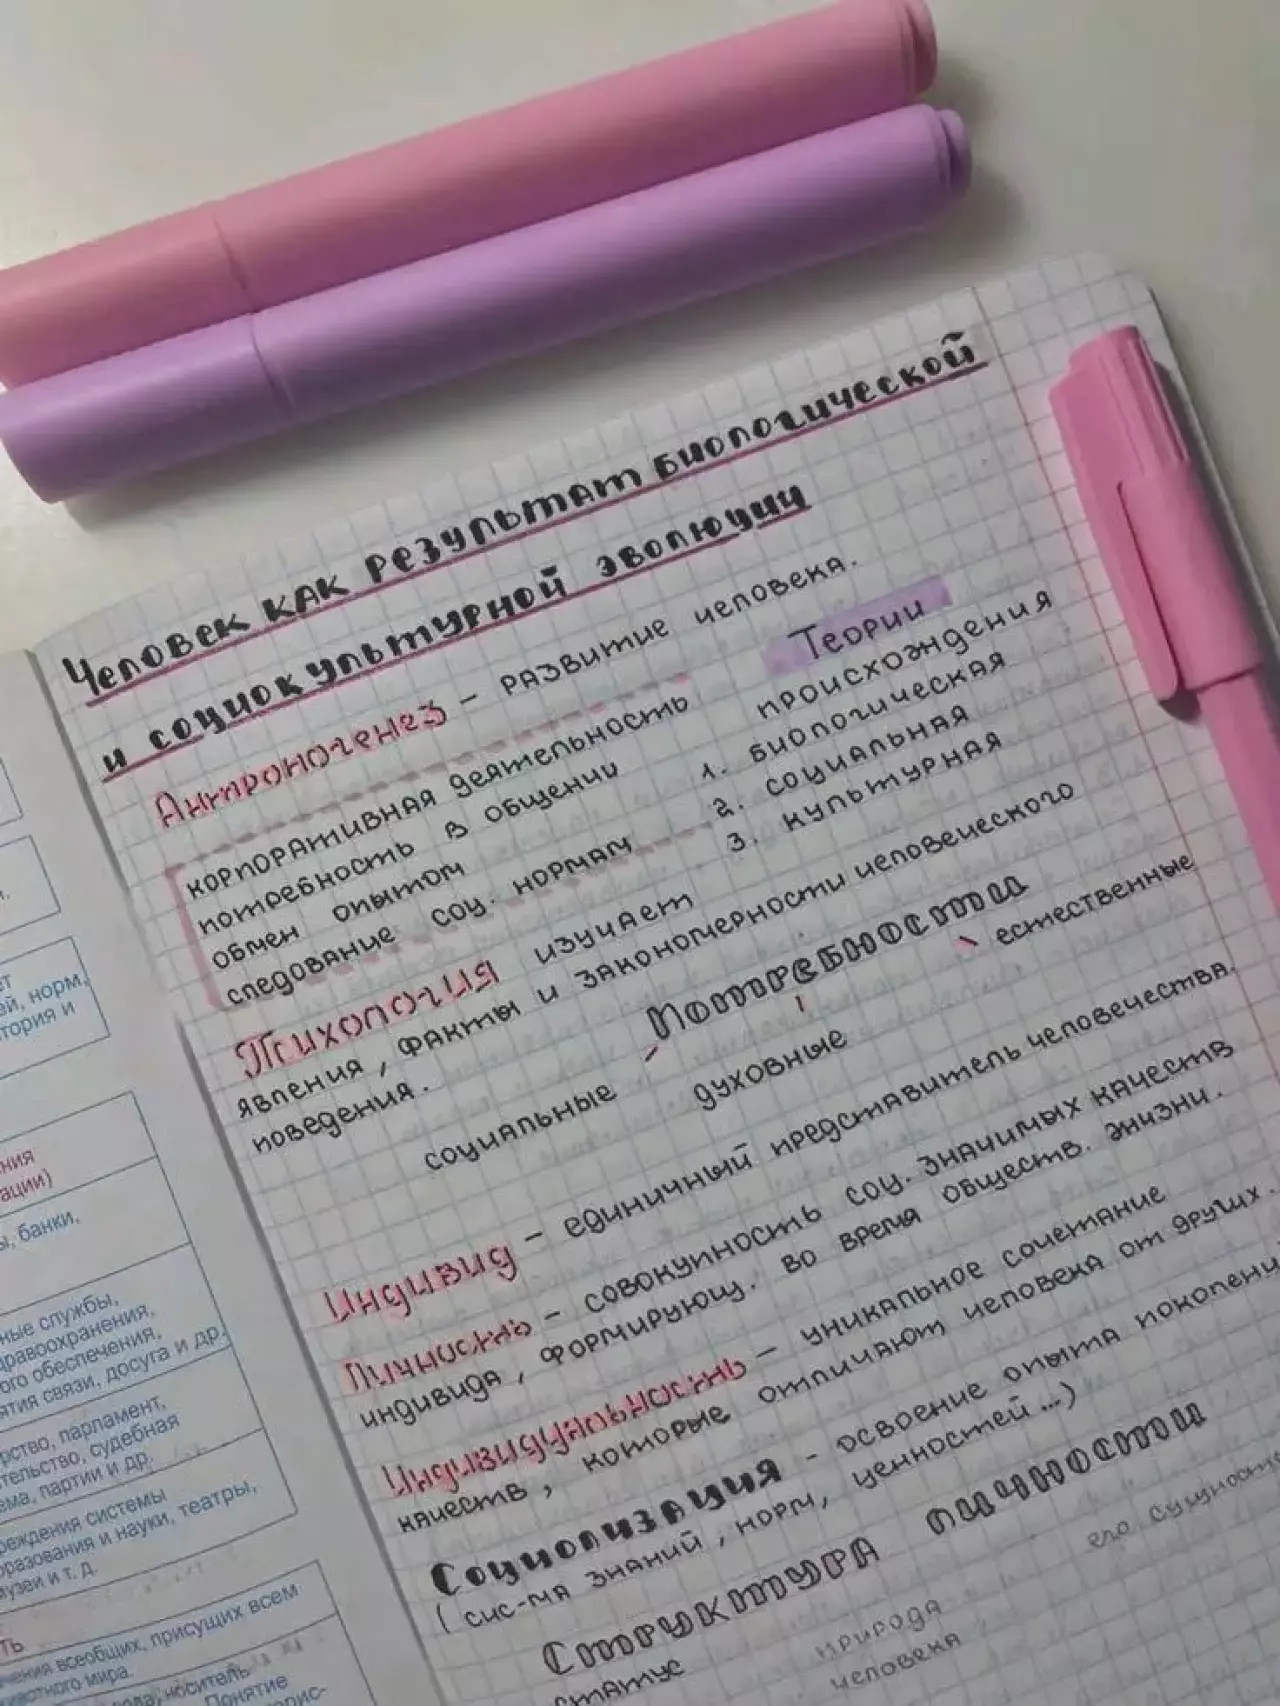 Человек как результат биологической
и социокультурной эволюции
Антропогенез – развитие человека.
корпоративная деятельность
потребность в общении
обмен опытом
следование соц. нормам
Теории
происхождения
1. биологическая
2. социальная
3. культурная
Психология изучает
явления, факты и закономерности человеческого
поведения.
Потребности
социальные
духовные
естественные
Индивид – единичный представитель человечества.
Личность – совокупность соц. значимых качеств
индивида, формирующ. во время обществ. жизни.
Индивидуальность – уникальное сочетание
качеств, которые отличают человека от других.
Социализация – освоение опыта
(сис-ма знаний, норм, ценностей...)
Структура личности
статус
природа
человека
его
норм,
и
банки.
службы,
обеспечения,
связи, досуга и др.
парламент,
судебная
партии и др.
системы
и науки, театры,
и т. д.
всеобщих, присущих всем
мира.
носитель
Понятие